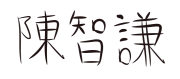 陳智謙